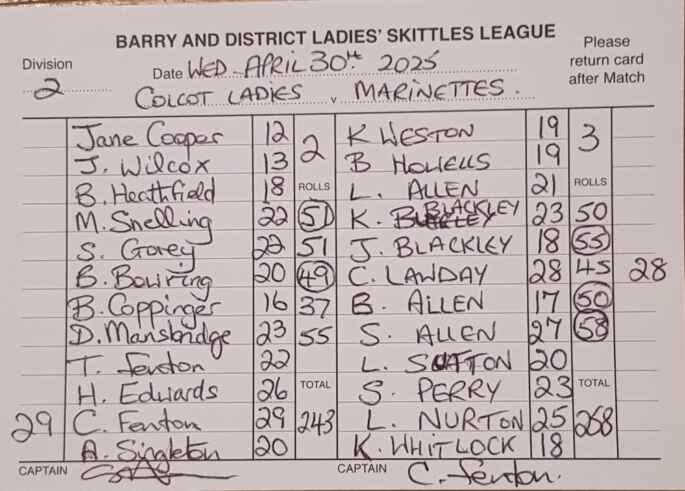 BARRY AND DISTRICT LADIES' SKITTLES LEAGUE
Division 2
Date WED. APRIL 30TH 2025
Please return card after Match
COLCOT LADIES v MARINETTES.
Jane Cooper 12 2 K WESTON 19 3
J. Wilcox 13 B HOWELLS 19
B. Heathfield 18 ROLLS L. ALLEN 21 ROLLS
M. Snelling 22 51 K. BLACKLEY 23 50
S. Gorey 22 51 J. BLACKLEY 18 55
B. Bowring 20 49 C. LAWDAY 28 45 28
B. Coppinger 16 37 B. ALLEN 17 50
D. Mansbridge 23 55 S. ALLEN 27 58
T. Fenton 22 L. SUTTON 20
H. Edwards 26 TOTAL S. PERRY 23 TOTAL
29 C. Fenton 29 243 L. NURTON 25 258
A. Singleton 20 K. WHITLOCK 18
CAPTAIN CAPTAIN C. Fenton.